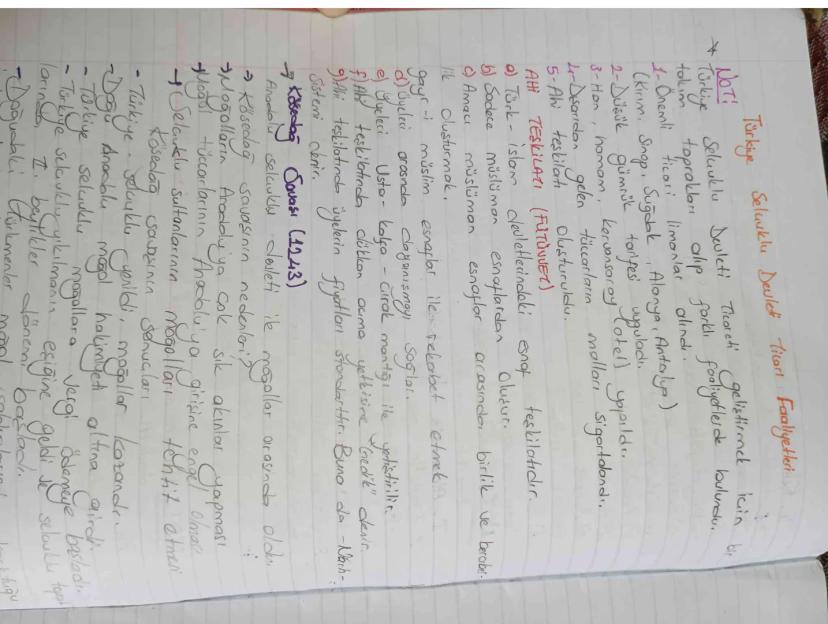 Türkiye Selçuklu Devleti Ticari Faaliyetleri
* NOT!
Türkiye Selçuklu Devleti Ticareti geliştirmek için bir
takım toprakları alıp farklı faaliyetlerde bulundu.
1- Önemli ticari limanlar alındı.
(Kırım, Sinop, Sugdak, Alanya, Antalya)
2- Düşük gümrük tarifesi uyguladı.
3- Han, hamam, kervansaray (otel) yapıldı.
4- Dışarıdan gelen tüccarların malları sigortalandı.
5- Ahi teşkilatı oluşturuldu.
AHİ TEŞKİLATI (FÜTÜVVET)
a) Türk-islam devletlerindeki esnaf teşkilatıdır.
b) Sadece müslüman esnaflardan oluşur.
c) Amacı müslüman esnaflar arasında birlik ve berabi-
lik oluşturmak.
gayr-i müslim esnaflar ile rekabet etmek
d) Üyeleri arasında dayanışmayı sağlar.
e) Üyeleri Usta-kalfa-çırak mantığı ile yetiştirilir.
f) Ahi teşkilatında dükkan açma yetkisine "Gedik" denir
g) Ahi teşkilatında üyelerin fiyatları standarttır. Buna da -Narh-
Sistemi denir.
→ Kösedağ Savaşı (1243)
Anadolu selçuklu devleti ile moğollar arasında oldu
→ Kösedağ savaşının nedenleri?
→ Moğolların Anadolu'ya çok sık akınlar yapması
→ Moğol tüccarlarının Anadolu'ya girişine engel olması
→ Selçuklu sultanlarının moğolları tehtit etmesi
Kösedağ savaşının sonuçları
- Türkiye selçuklu yenildi, moğollar kazandı.
- Doğu Anadolu moğol hakimiyeti altına girdi.
- Türkiye selçuklu moğollara vergi ödemeye başladı
- Türkiye selçuklu yıkılmanın eşiğine geldi ve selçuklu top
larında II. beylikler dönemi başladı.
- Doğudaki türkmenler moğol